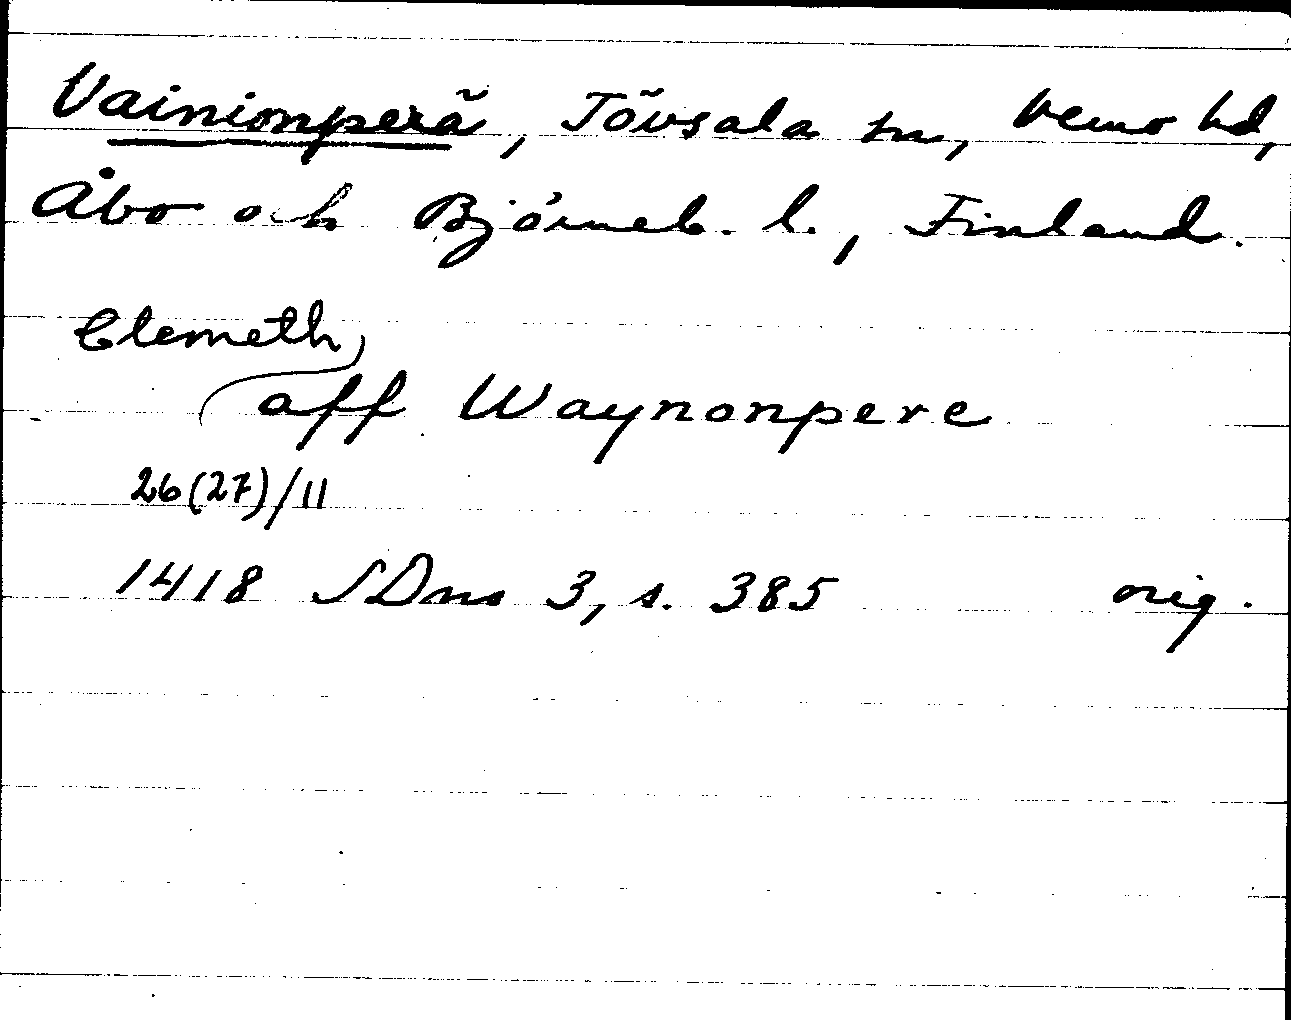 Vainionperä, Tövsala sn, Vemo hd,
Åbo och Björneb. l., Finland.
Clemeth
aff Waynonpere
26(27)/11
1418 SDns 3, s. 385 orig.